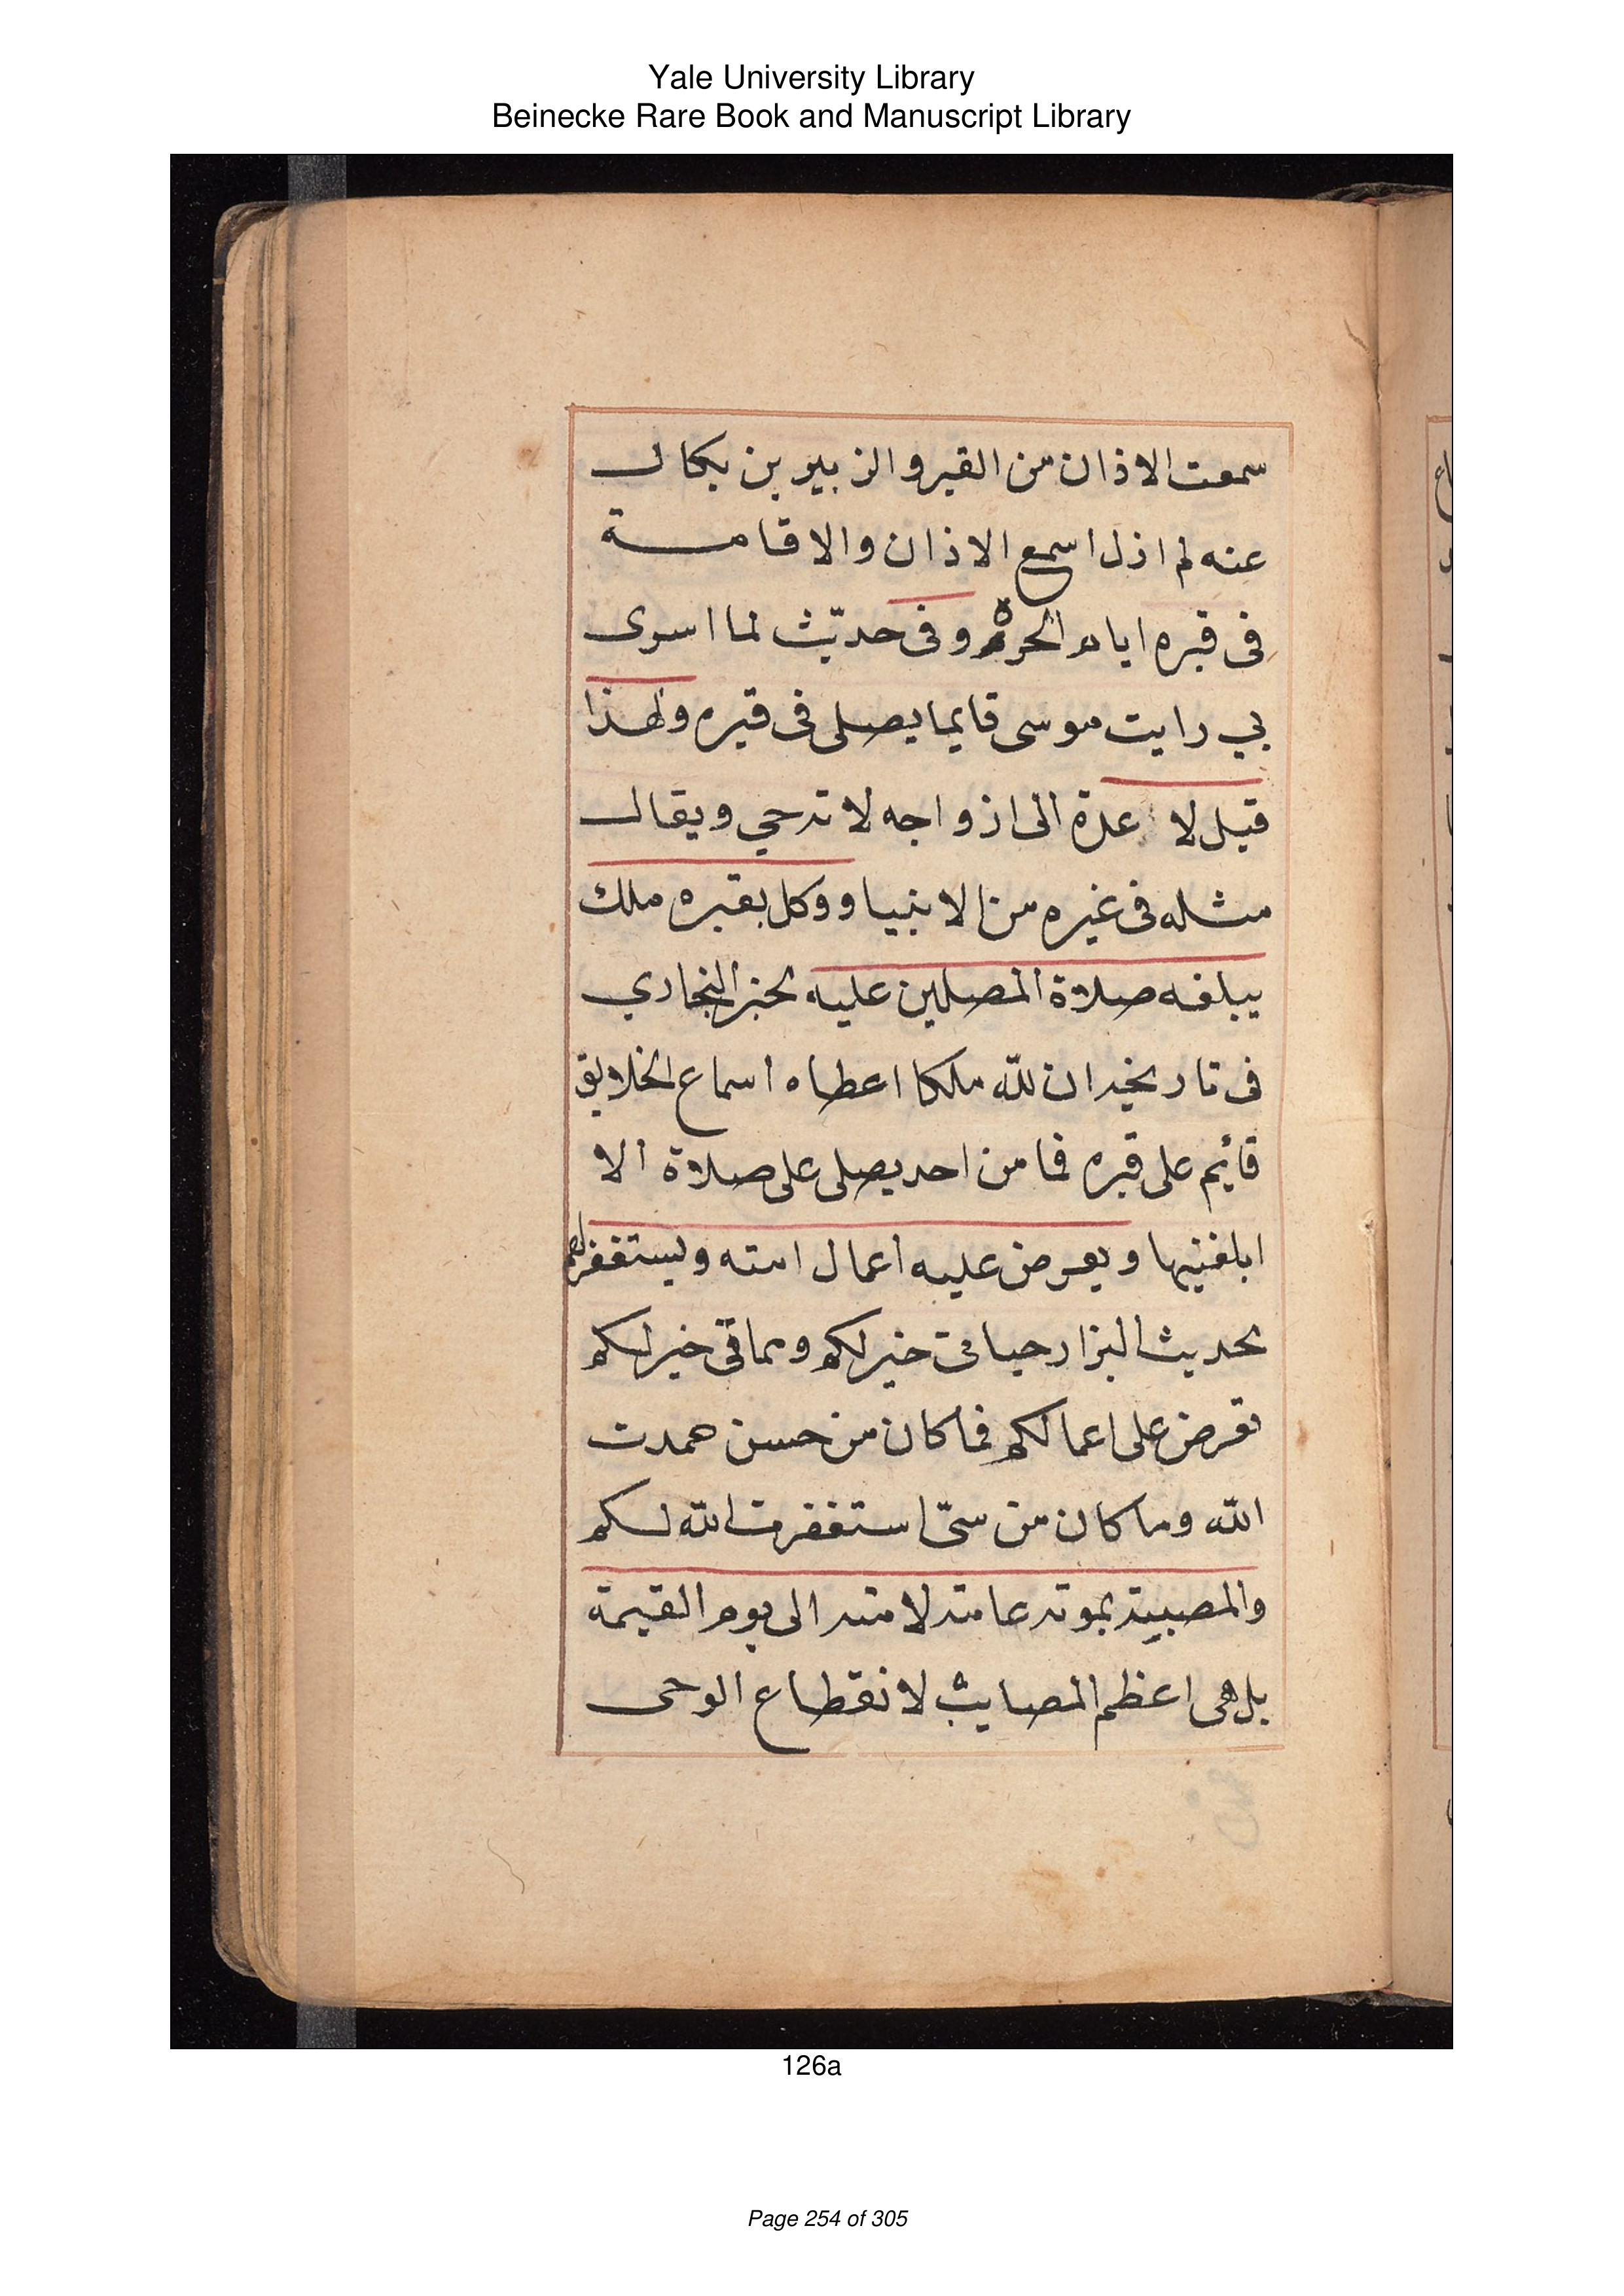 Yale University Library
Beinecke Rare Book and Manuscript Library
سمعت الاذان من القبر والزبير بن بكال
عنه لم اذل اسمع الاذان والاقامة
فى قبره ايام الحرة وفى حديث لما اسرى
بي رايت موسى قايما يصلى فى قبره ولهذا
قيل لا عدة الى ازواجه لا ترجي ويقال
مثله فى غيره من الانبيا ووكل بقبره ملك
يبلغه صلاة المصلين عليه لخبر البخاري
فى تاريخه ان لله ملكا اعطاه اسماع الخلايق
قائيم على قبره فما من احد يصلى على صلاة الا
ابلغنيها ويعرض عليه اعمال امته ويستغفر لهم
لحديث البزار حياتى خير لكم ومماتى خير لكم
تعرض على اعمالكم فما كان من حسن حمدت
الله وما كان من سئ استغفرت الله لكم
والمصيبة بموته عامة لامته الى يوم القيمة
بل هى اعظم المصايب لانقطاع الوحى
126a
Page 254 of 305